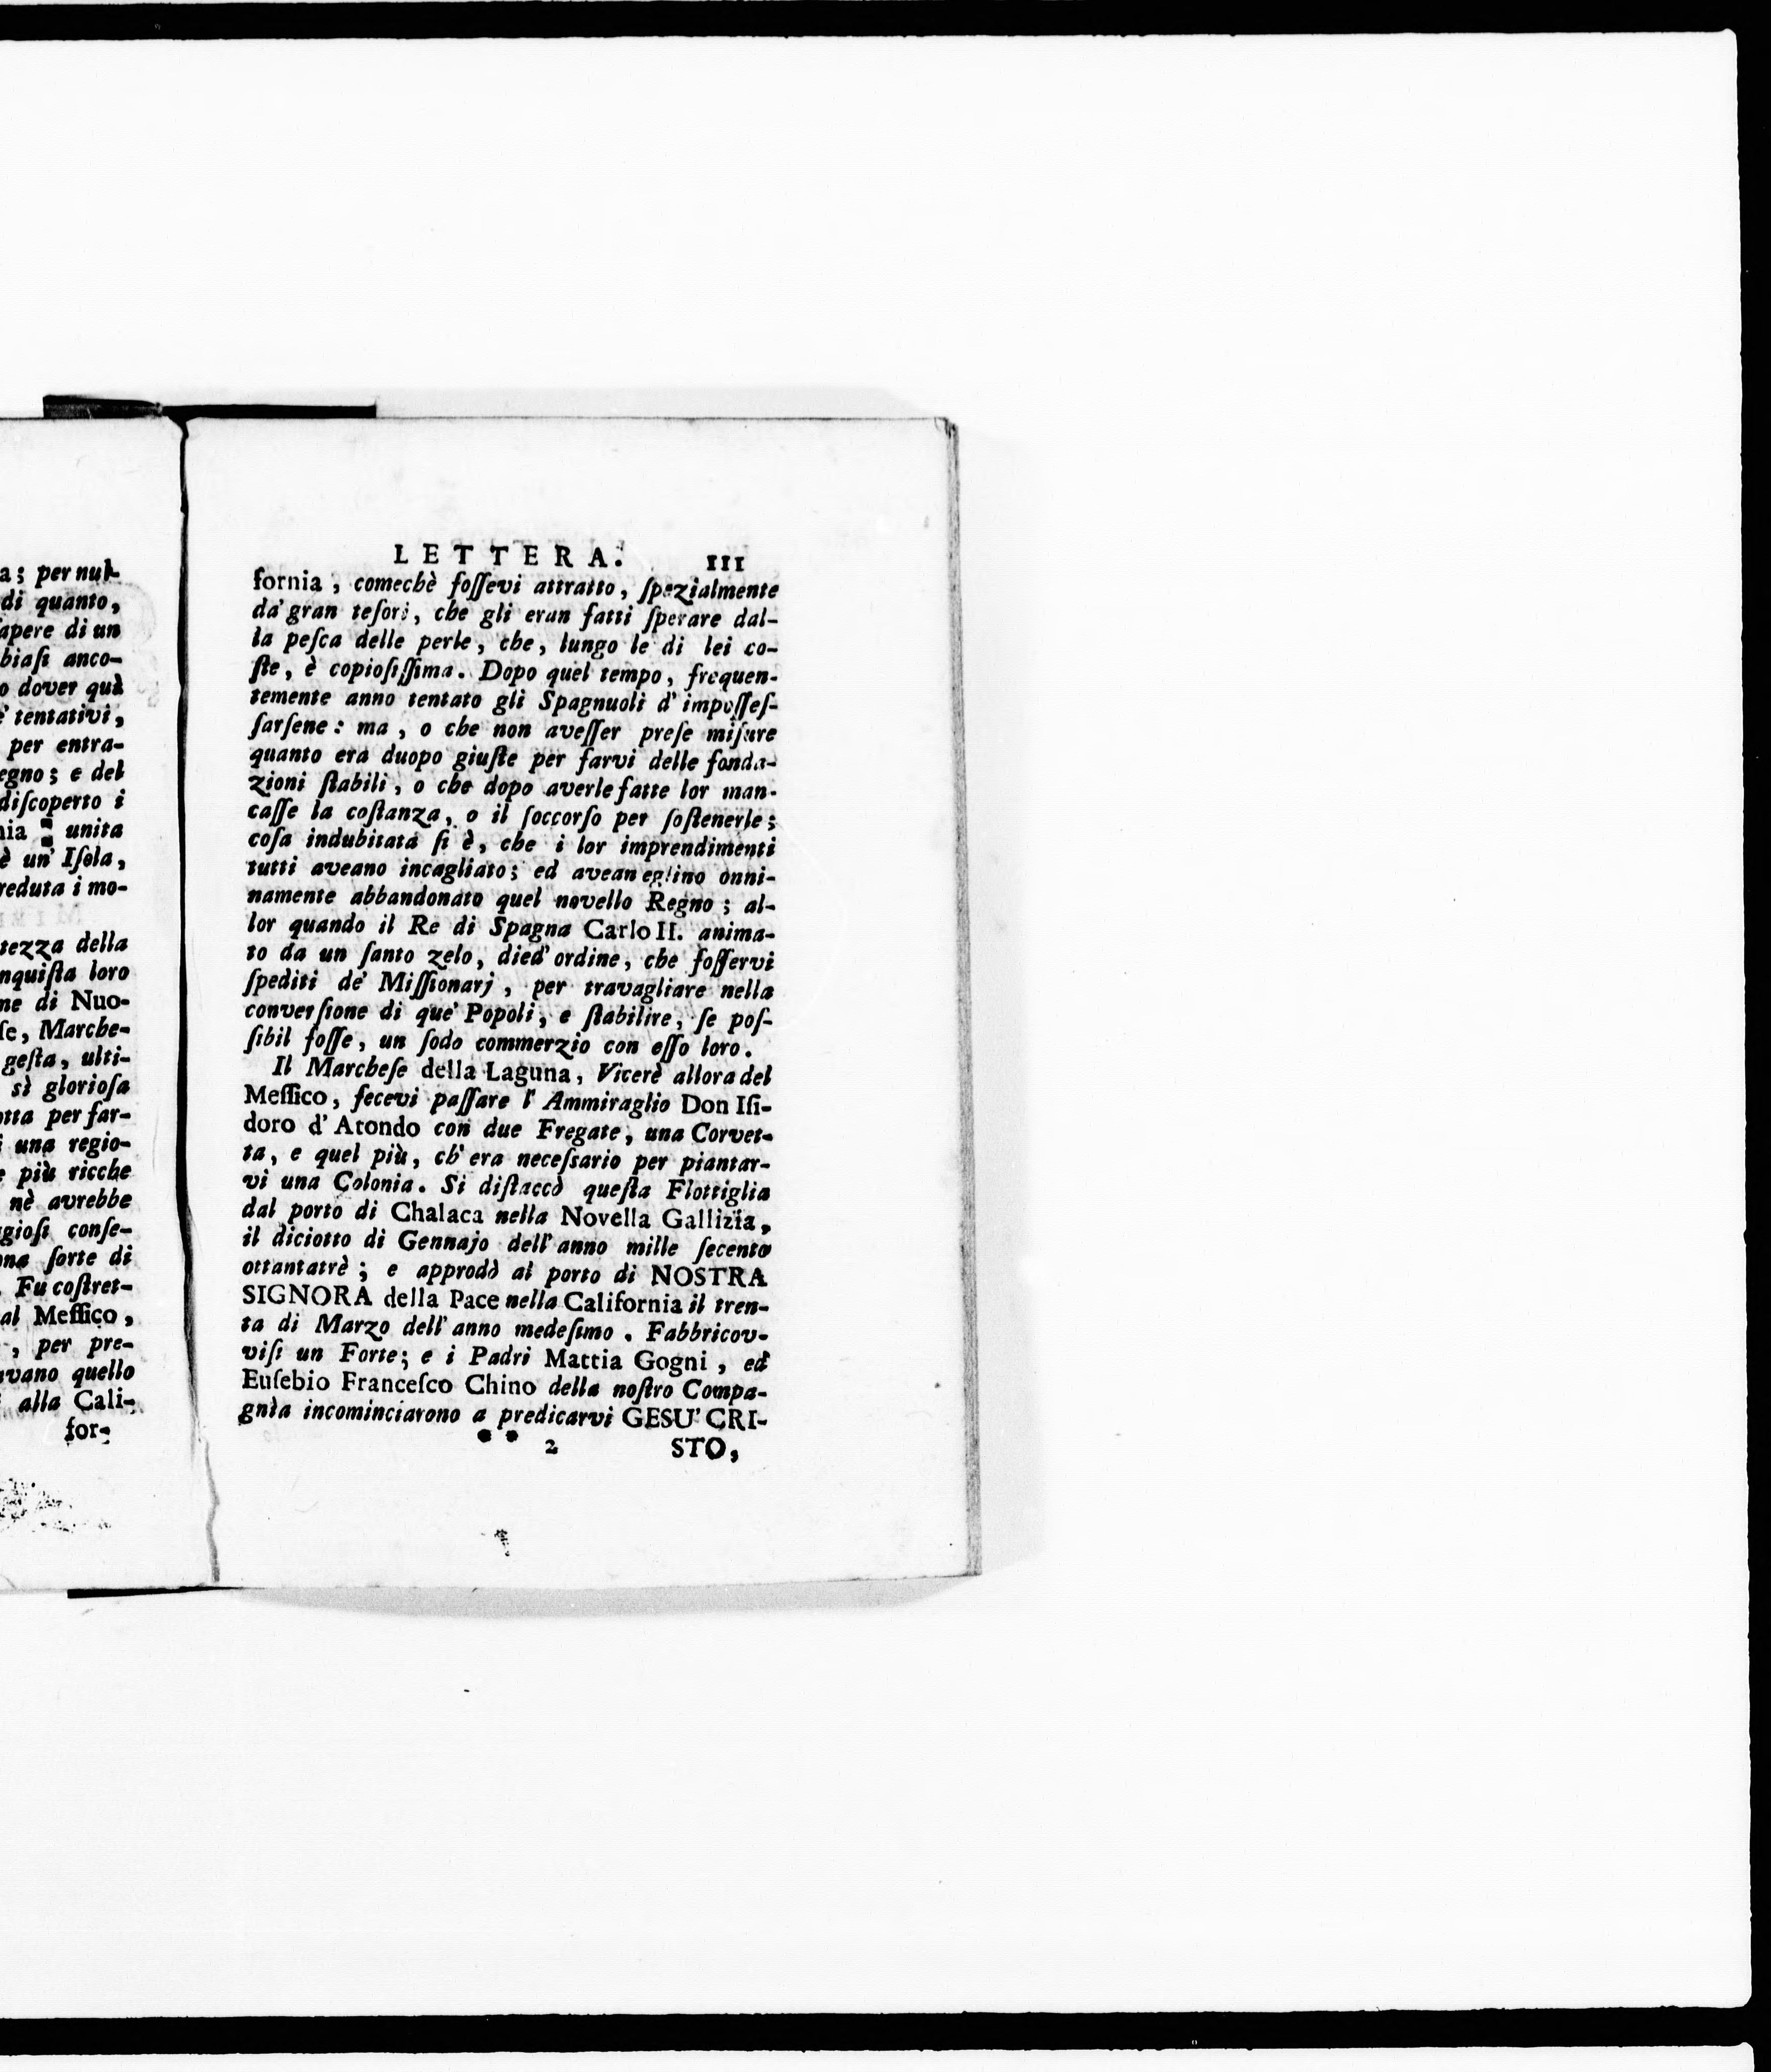 a; per nul-
di quanto,
sapere di un
biaſi anco-
o dover quà
e' tentativi,
per entra-
egno; e del
diſcoperto i
nia unita
è un' Iſola,
reduta i mo-
tezza della
nquiſta loro
me di Nuo-
ſe, Marche-
geſta, ulti-
sì glorioſa
otta per far-
i una regio-
e più ricche
nè avrebbe
ggioſi conſe-
ona ſorte di
. Fu coſtret-
al Meſſico,
, per pre-
avano quello
alla Cali-
for-
LETTERA. III
fornia, comechè foſſevi attratto, ſpezialmente
da' gran teſori, che gli eran fatti ſperare dal-
la peſca delle perle, che, lungo le di lei co-
ſte, è copioſiſſima. Dopo quel tempo, frequen-
temente anno tentato gli Spagnuoli d' impoſſeſ-
ſarſene: ma, o che non aveſſer preſe miſure
quanto era duopo giuſte per farvi delle fonda-
zioni ſtabili, o che dopo averle fatte lor man-
caſſe la coſtanza, o il ſoccorſo per ſoſtenerle;
coſa indubitata ſi è, che i lor imprendimenti
tutti aveano incagliato; ed avean eglino onni-
namente abbandonato quel novello Regno; al-
lor quando il Re di Spagna Carlo II. anima-
to da un ſanto zelo, died' ordine, che foſſervi
ſpediti de' Miſſionarj, per travagliare nella
converſione di que' Popoli, e ſtabilire, ſe poſ-
ſibil foſſe, un ſodo commerzio con eſſo loro.
Il Marcheſe della Laguna, Vicerè allora del
Meſſico, fecevi paſſare l' Ammiraglio Don Iſi-
doro d' Atondo con due Fregate, una Corvet-
ta, e quel più, ch' era neceſsario per piantar-
vi una Colonia. Si diſtaccò queſta Flottiglia
dal porto di Chalaca nella Novella Gallizia,
il diciotto di Gennajo dell' anno mille ſecento
ottantatrè; e approdò al porto di NOSTRA
SIGNORA della Pace nella California il tren-
ta di Marzo dell' anno medeſimo. Fabbricov-
viſi un Forte; e i Padri Mattia Gogni, ed
Euſebio Franceſco Chino della noſtro Compa-
gnìa incominciarono a predicarvi GESU' CRI-
* * 2 STO,